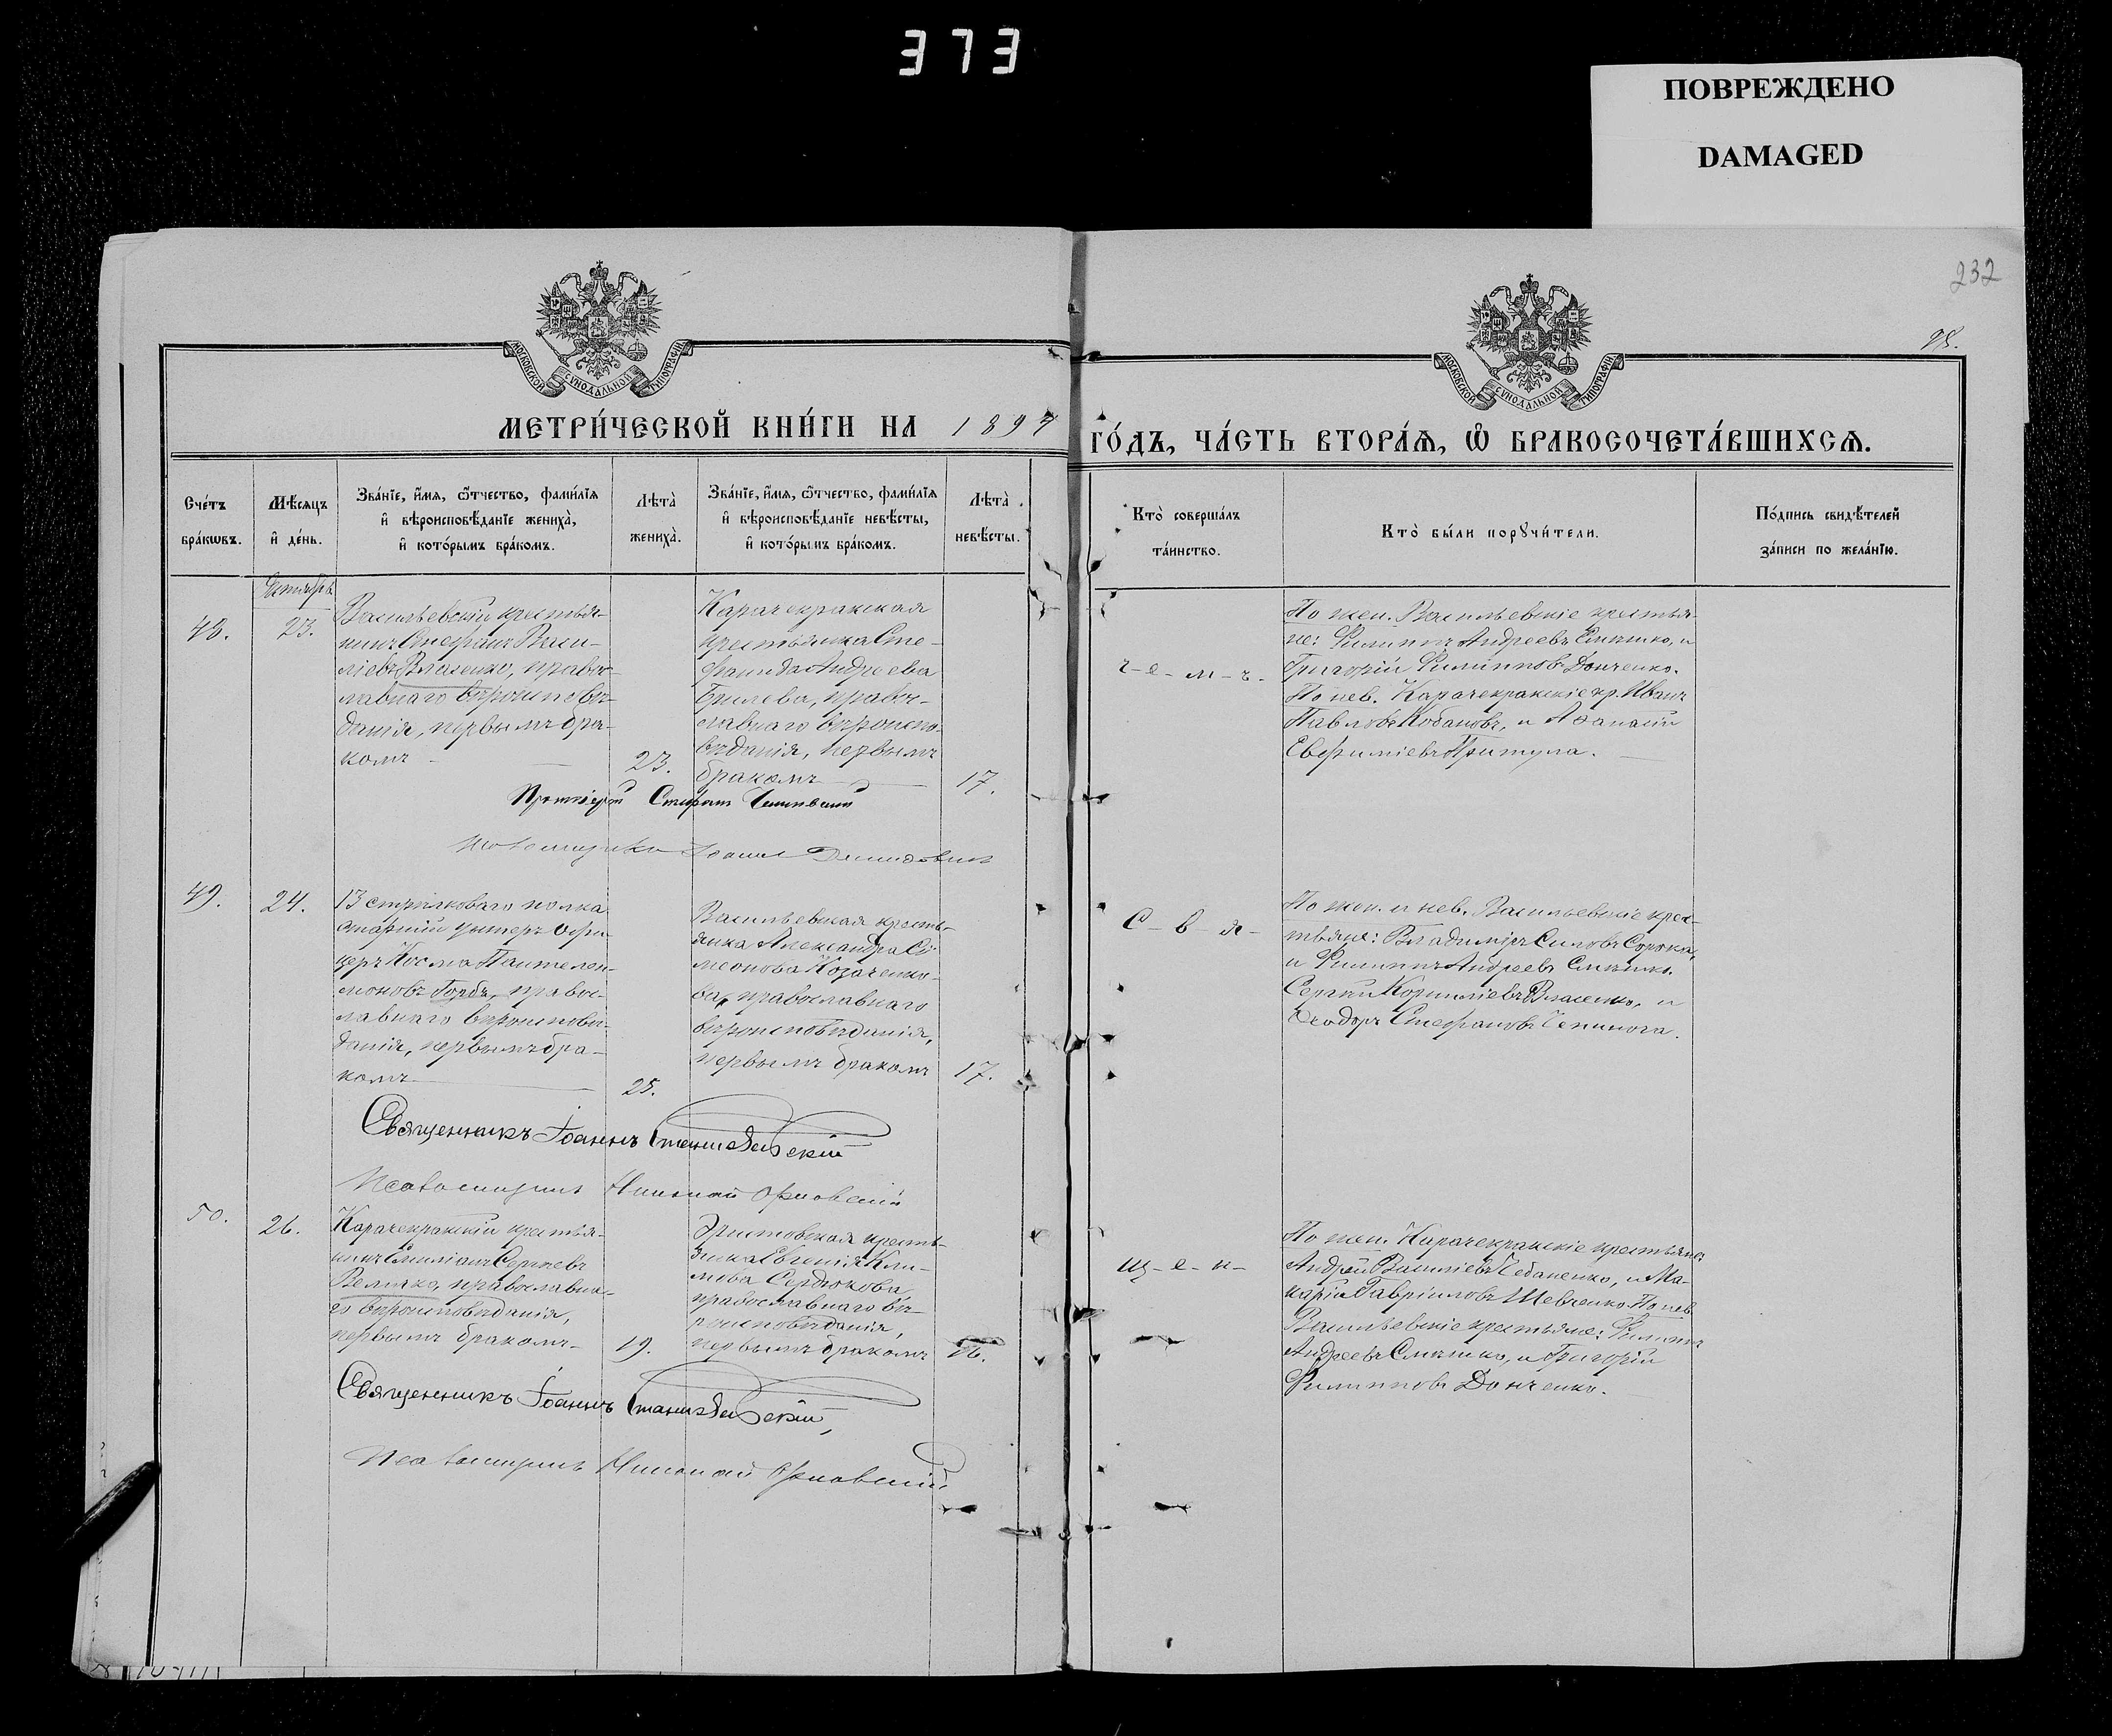 373
ПОВРЕЖДЕНО
DAMAGED
232
98.
МОСКОВСКОЙ СѴНОДАЛЬНОЙ ТИПОГРАФІИ
МОСКОВСКОЙ СѴНОДАЛЬНОЙ ТИПОГРАФІИ
МЕТРИ́ЧЕСКОЙ КНИ́ГИ НА 1897
ГО́ДЪ, ЧА́СТЬ ВТОРА́Ѧ, Ѡ҆ БРАКОСОЧЕТА́ВШИХСѦ.
Сче́тъ
бра́кѡвъ.
Мѣ́сѧцъ
и҆ де́нь.
Зва́нїе, и҆́мѧ, ѻ҆́тчество, фами́лїѧ
и҆ вѣроисповѣ́данїе жениха̀,
и҆ кото́рымъ бра́комъ.
Лѣта̀
жениха̀.
Зва́нїе, и҆́мѧ, ѻ҆́тчество, фами́лїѧ
и҆ вѣроисповѣ́данїе невѣ́сты,
и҆ кото́рымъ бра́комъ.
Лѣта̀
невѣ́сты.
Кто̀ соверша́лъ
та́инство.
Кто̀ бы́ли порꙋчи́тели.
По́дпись свидѣ́телей
за́писи по жела́нїю.
Октябрь
48.
23.
Васильевскій крестья-
нинъ Стефанъ Васи-
ліевъ Власенко, правос-
лавнаго вѣроисповѣ-
данія, первымъ бра-
комъ
23.
Карачекракская
крестьянка Сте-
фанида Андреева
Брилева, правос-
лавнаго вѣроиспо-
вѣданія, первымъ
бракомъ
17.
ч-е-м-ъ.
По жен. Васильевскіе крестья-
не: Филиппъ Андреевъ Смѣшко, и
Григорій Филипповъ Донченко.
По нев. Карачекракскіе кр. Иванъ
Павловъ Кобановъ, и Аѳанасій
Евфиміевъ Притула.
Протоіерей Стефанъ
Псаломщикъ
49.
24.
13 стрѣлковаго полка
старшій унтеръ офи-
церъ Косма Пантелеи-
моновъ Горбъ, правос-
лавнаго вѣроисповѣ-
данія, первымъ бра-
комъ
25.
Васильевская кресть-
янка Александра Си-
меонова Козаченко-
ва, православнаго
вѣроисповѣданія,
первымъ бракомъ
17.
С-в-я-
По жен. и нев. Васильевскіе крес-
тьяне: Владиміръ Силовъ Сорока,
и Филиппъ Андреевъ Смѣшко.
Сергій Корниліевъ Власенко, и
Ѳеодоръ Стефановъ Чепинога.
Священникъ Іоаннъ Станиславскій
Псаломщикъ Николай Орловскій
50.
26.
Карачекракскій крестья-
нинъ Емиліанъ Сергіевъ
Величко, православна-
го вѣроисповѣданія,
первымъ бракомъ-
19.
Эристовская кресть-
янка Евгенія Кли-
мова Сердюкова,
православнаго вѣ-
роисповѣданія,
первымъ бракомъ
16.
щ-е-н-
По жен. Карачекракскіе крестьяне:
Андрей Василіевъ Чебаненко, и Ма-
карій Гавріиловъ Шевченко. По нев.
Васильевскіе крестьяне: Филиппъ
Андреевъ Смѣшко, и Григорій
Филипповъ Донченко.
Священникъ Іоаннъ Станиславскій,
Псаломщикъ Николай Орловскій